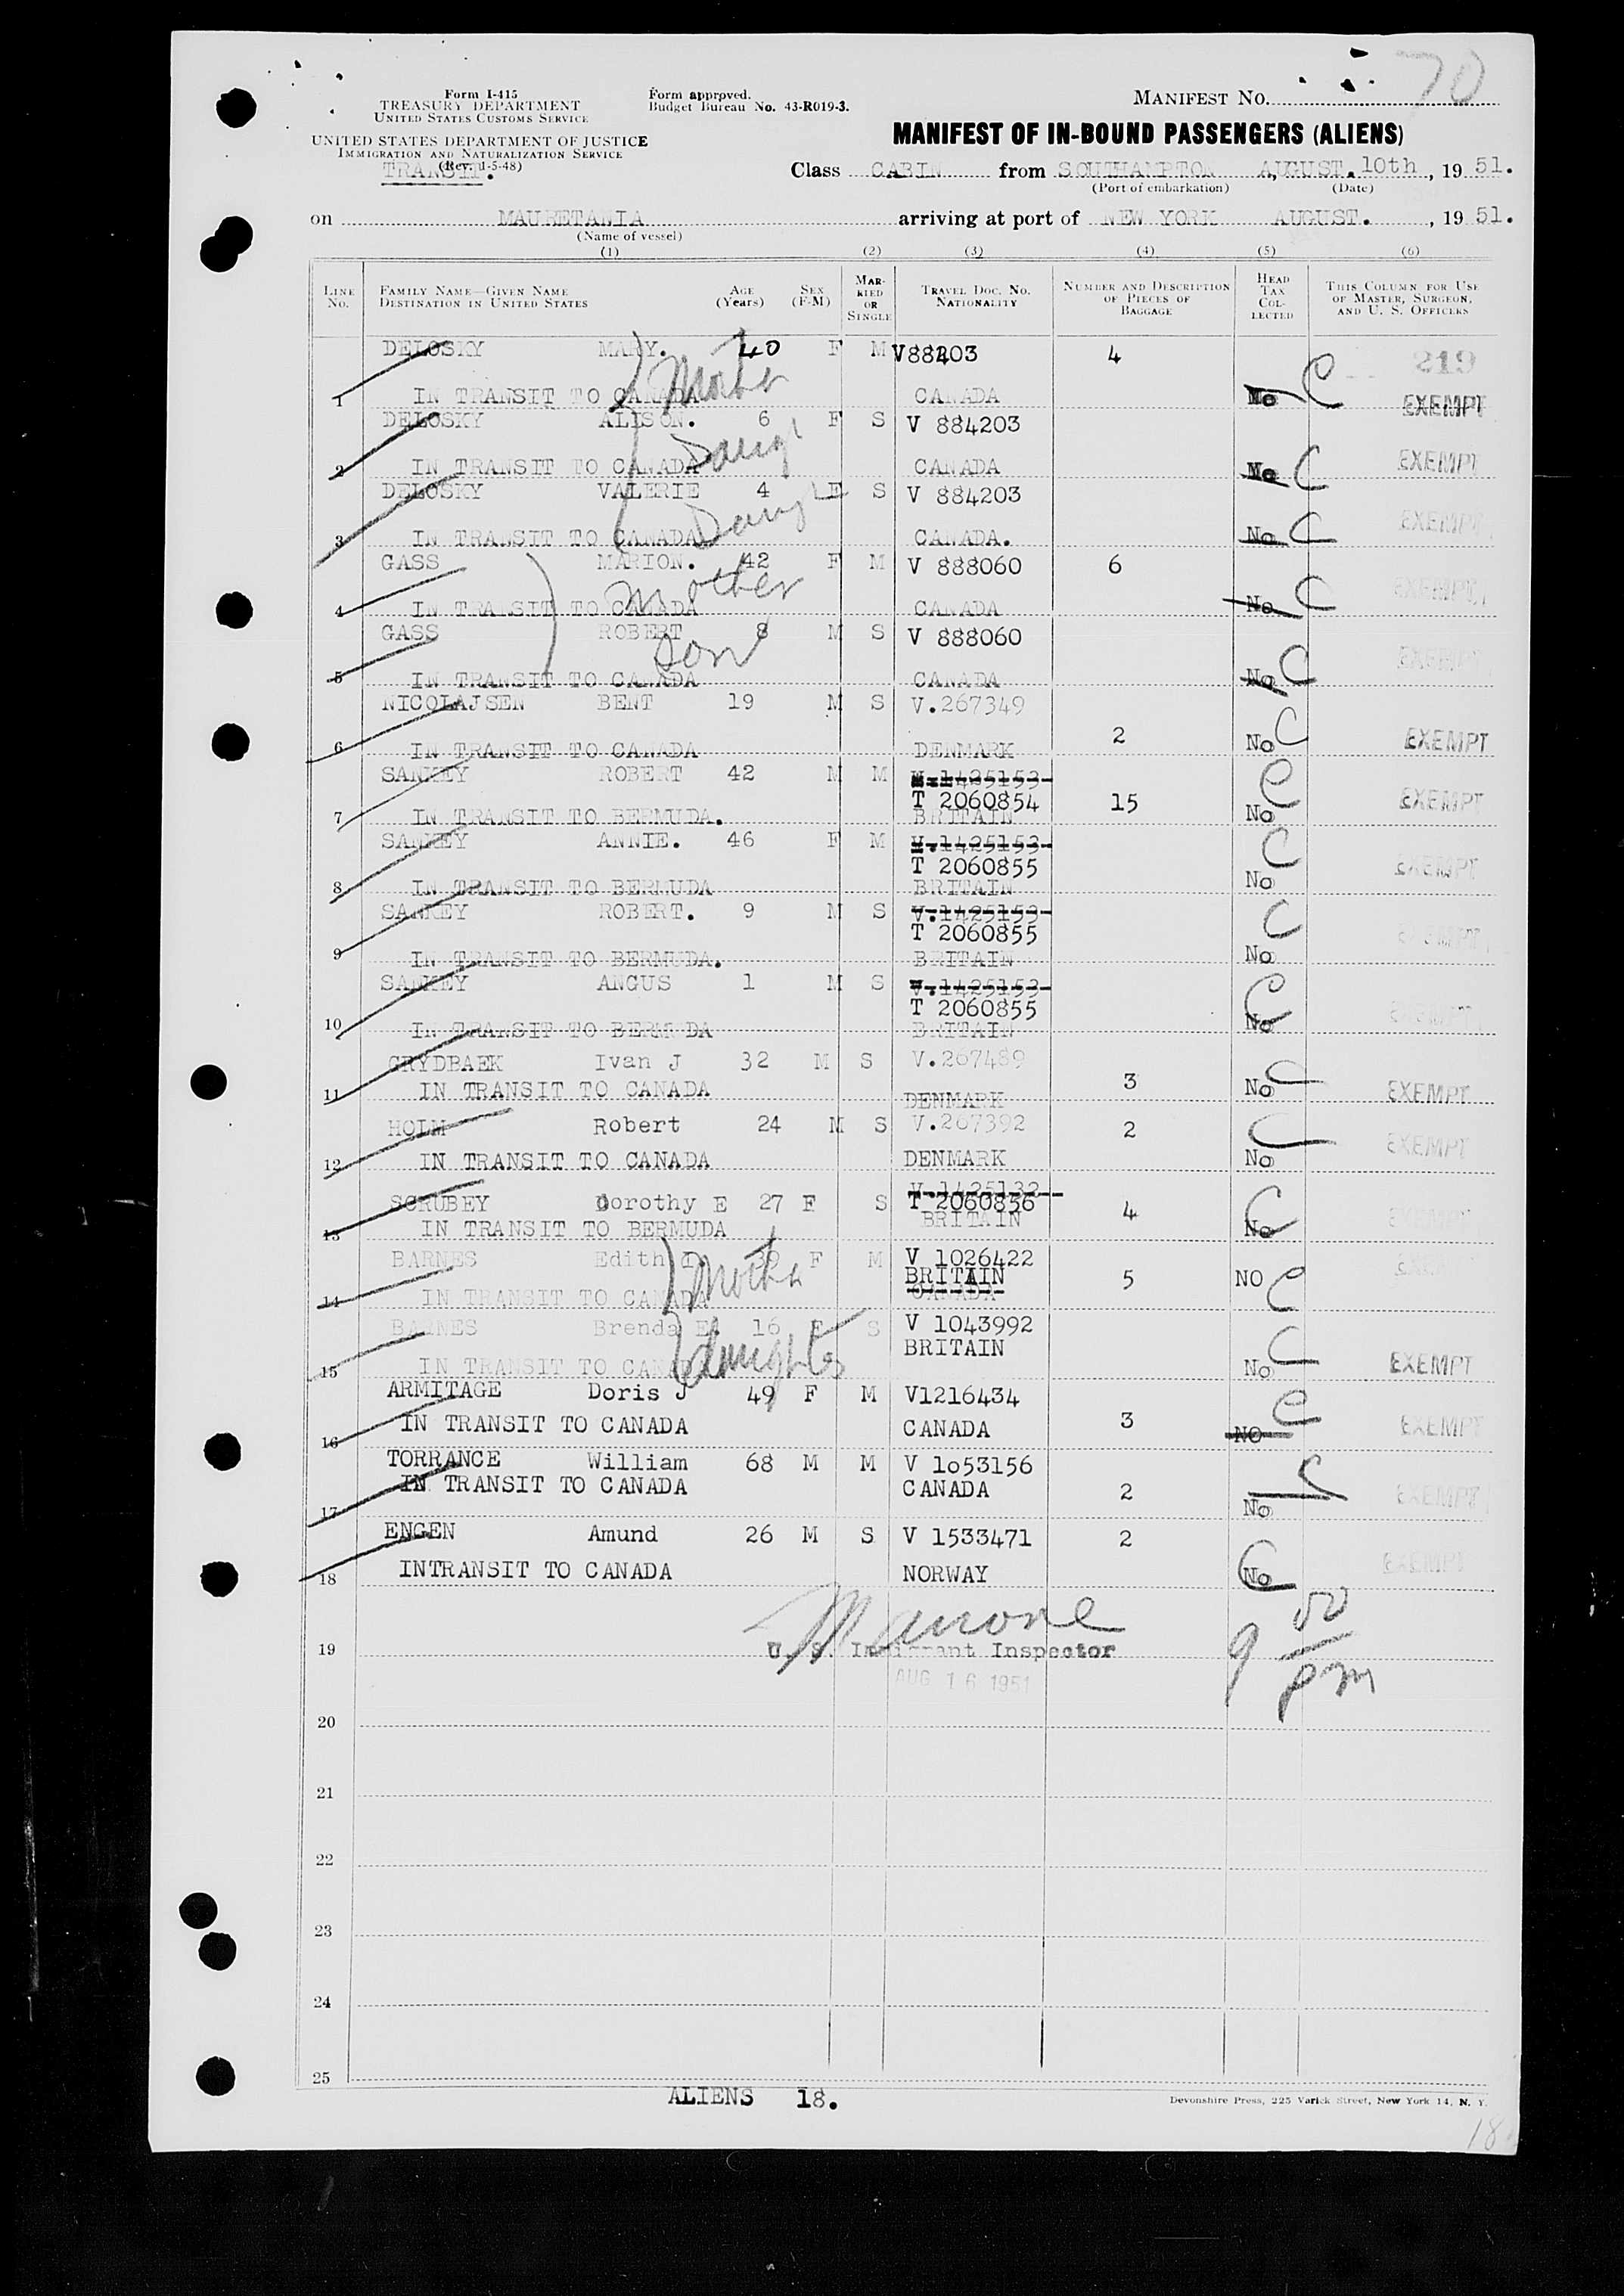 70
Form I-415
TREASURY DEPARTMENT
UNITED STATES CUSTOMS SERVICE
Form approved.
Budget Bureau No. 43-R019-3.
MANIFEST NO.
UNITED STATES DEPARTMENT OF JUSTICE
IMMIGRATION AND NATURALIZATION SERVICE
(Rev. 1-5-48)
TRANSIT.
MANIFEST OF IN-BOUND PASSENGERS (ALIENS)
Class CABIN from SOUTHAMPTON AUGUST.10th, 1951.
(Port of embarkation) (Date)
on MAURETANIA arriving at port of NEW YORK AUGUST. , 1951.
(Name of vessel)
(1) (2) (3) (4) (5) (6)
LINE No. FAMILY NAME—GIVEN NAME DESTINATION IN UNITED STATES AGE (Years) SEX (F-M) MARRIED OR SINGLE TRAVEL DOC. NO. NATIONALITY NUMBER AND DESCRIPTION OF PIECES OF BAGGAGE HEAD TAX COLLECTED THIS COLUMN FOR USE OF MASTER, SURGEON, AND U. S. OFFICERS
DELOSKY MARY. 40 F M 4 219
Mother
1 IN TRANSIT TO CANADA CANADA No C EXEMPT
DELOSKY ALISON. 6 F S V 884203
Daug
2 IN TRANSIT TO CANADA CANADA No C EXEMPT
DELOSKY VALERIE 4 F S V 884203
Daug
3 IN TRANSIT TO CANADA CANADA. No C EXEMPT
GASS MARION. 42 F M V 888060 6
Mother
4 IN TRANSIT TO CANADA CANADA No C EXEMPT
GASS ROBERT 8 M S V 888060
Son
5 IN TRANSIT TO CANADA CANADA No C EXEMPT
NICOLAJSEN BENT 19 M S V.267349
6 IN TRANSIT TO CANADA DENMARK 2 No C EXEMPT
SANKEY ROBERT 42 M M V.1425153
T 2060854 15
7 IN TRANSIT TO BERMUDA. BRITAIN No C EXEMPT
SANKEY ANNIE. 46 F M V.1425153
T 2060855
8 IN TRANSIT TO BERMUDA BRITAIN No C EXEMPT
SANKEY ROBERT. 9 M S V.1425153
T 2060855
9 IN TRANSIT TO BERMUDA. BRITAIN No C EXEMPT
SANKEY ANGUS 1 M S V.1425153
T 2060855
10 IN TRANSIT TO BERMUDA BRITAIN No C EXEMPT
GRYDBAEK Ivan J 32 M S V.267489
11 IN TRANSIT TO CANADA DENMARK 3 No C EXEMPT
HOLM Robert 24 M S V.267392 2
12 IN TRANSIT TO CANADA DENMARK No C EXEMPT
V.1425132
SCRUBEY Dorothy E 27 F S T 2060836 4
13 IN TRANSIT TO BERMUDA BRITAIN No C EXEMPT
BARNES Edith 39 F M V 1026422
Mother
BRITAIN 5 NO C EXEMPT
14 IN TRANSIT TO CANADA CANADA
BARNES Brenda E. 16 F S V 1043992
daughter
BRITAIN
15 IN TRANSIT TO CANADA No C EXEMPT
ARMITAGE Doris J 49 F M V1216434
16 IN TRANSIT TO CANADA CANADA 3 NO C EXEMPT
TORRANCE William 68 M M V 1o53156
17 IN TRANSIT TO CANADA CANADA 2 No C EXEMPT
ENGEN Amund 26 M S V 1533471 2
18 INTRANSIT TO CANADA NORWAY No C EXEMPT
19 U. S. Immigrant Inspector 9 50 pm
AUG 16 1951
20
21
22
23
24
25
ALIENS 18.
Devonshire Press, 225 Varick Street, New York 14, N. Y.
18